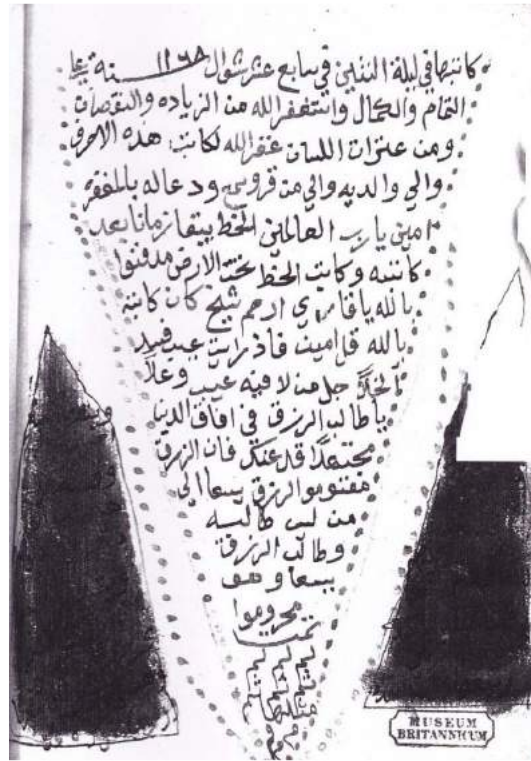 كاتبها في ليلة اثنين في سابع عشر شوال سنة ١١٦٨
التمام والكمال واستغفر الله من الزياده والنقصان
ومن عثرات اللسان غفر الله لكاتب هذه الاحرف
والي والديه والي من قرو ودعا له بالمغفره
امين يا رب العالمين الخط يبقا زمانا بعد
كاتبه وكاتب الخط تحت الارض مدفنوا
بالله يا قاري ارحم شيخ كان كاتبه
بالله قل امين فاذ رايت عيب فسد
الخلا جل من لا فيه عيب وعلا
يا طالب الرزق في افاق الدنيا
مجتهدا فان الرزق
مقسوم الرزق يسعا الي
من ليس طالبه
وطالب الرزق
يسعا وهو
محروموا
تمت
تم تم تم
MUSEUM
BRITANNICUM